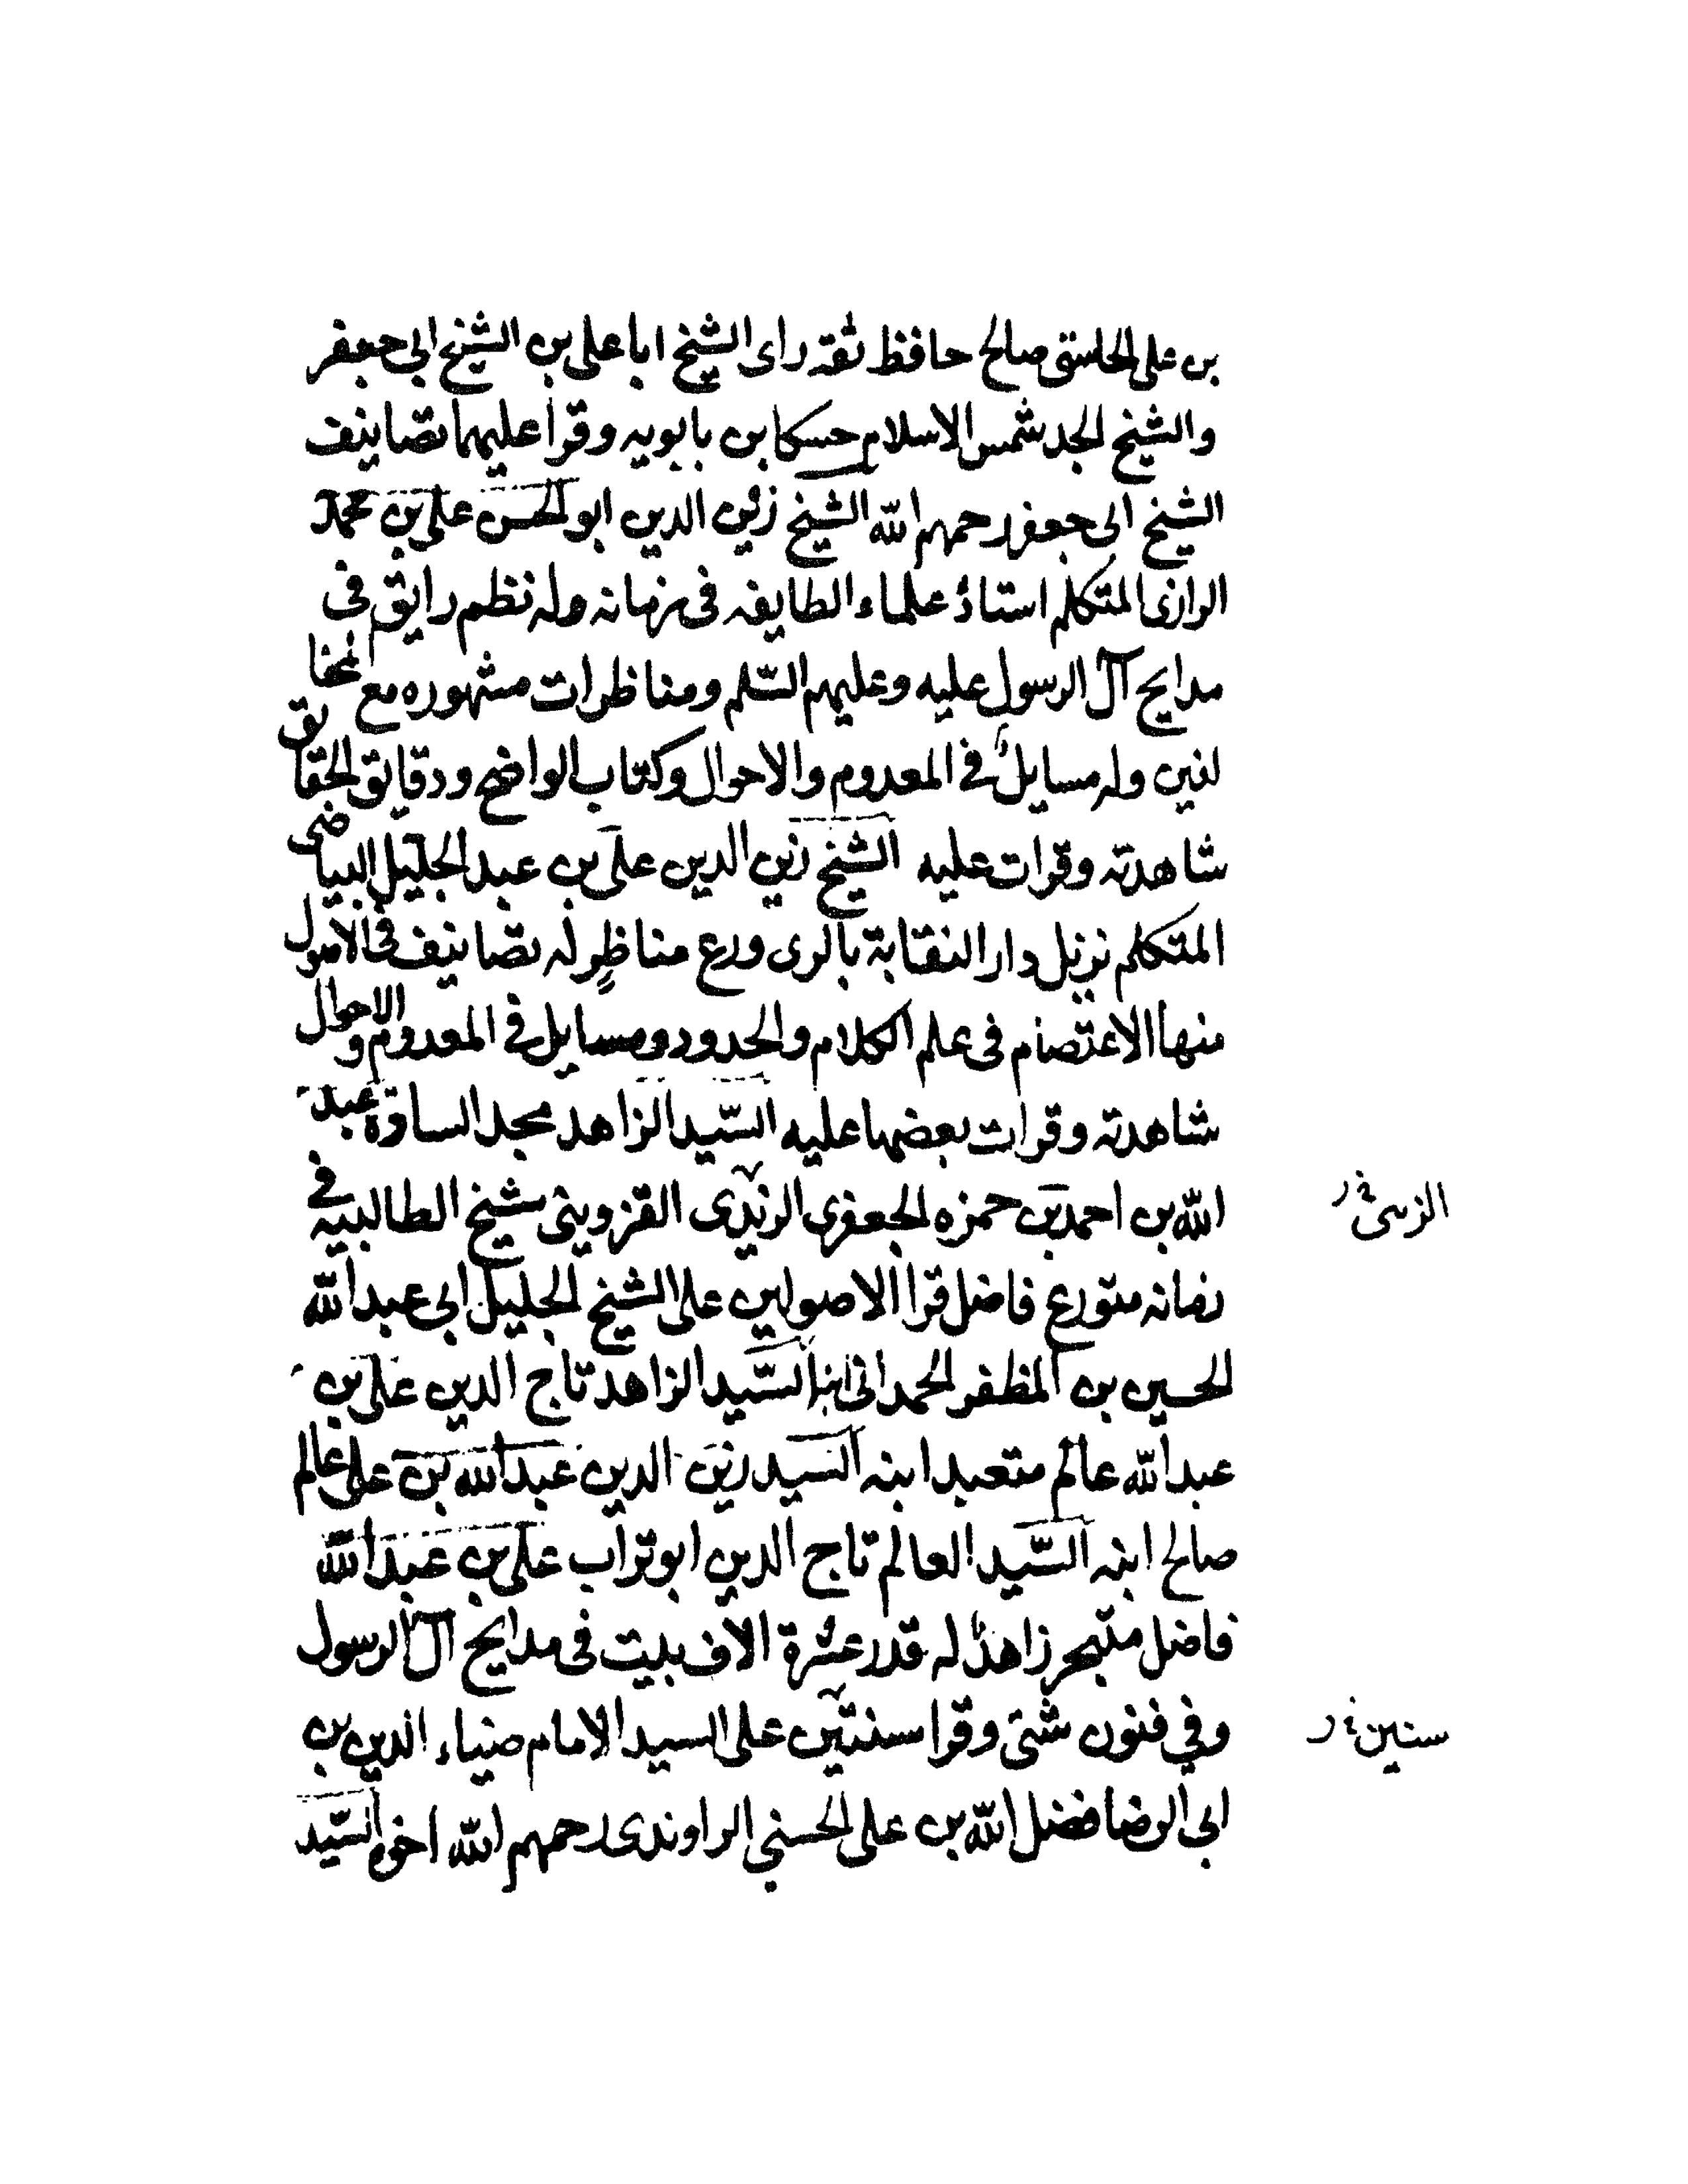 بن على الجاستى صالح حافظ ثقه راى الشيخ ابا على بن الشيخ ابى جعفر
والشيخ الجد شمس الاسلام حسكا بن بابويه وقرا عليهما تصانيف
الشيخ ابى جعفر رحمهم الله الشيخ زين الدين ابو الحسن على بن محمد
الرازى المتكلم استاذ علماء الطايفه فى زمانه وله نظم رايق فى
مدايح آل الرسول عليه وعليهم السّلم ومناظرات مشهوره مع المخا
لفين وله مسايل فى المعدوم والاحوال وكتاب الواضح ودقايق الحقايق
شاهدته وقرات عليه الشيخ زين الدين على بن عبد الجليل البياضى
المتكلم نزيل دار النقابة بالرى ورع مناظر له تصانيف فى الاصول
منها الاعتصام فى علم الكلام والحدود ومسايل فى المعدوم والاحوال
شاهدته وقرات بعضها عليه السّيد الزاهد مجد الساوة عبد
الله بن احمد بن حمزه الجعفرى الزيدى القزوينى شيخ الطالبيه فى
الزينبى
زمانه متورع فاضل قرا الاصولين على الشيخ الجليل ابى عبد الله
الحسين بن المظفر الحمدانى ابنه السّيد الزاهد تاج الدين على بن
عبد الله عالم متعبد ابنه السيد زين الدين عبد الله بن على عالم
صالح ابنه السّيد العالم تاج الدين ابو تراب على بن عبد الله
فاضل متبحر زاهد له قدر عشرة الاف بيت فى مدايح آل الرسول
وفي فنون شتى وقرا سنتين على السيد الامام ضياء الدين بن
سنين
ابى الرضا فضل الله بن على الحسني الراوندى رحمهم الله اخوه السّيد